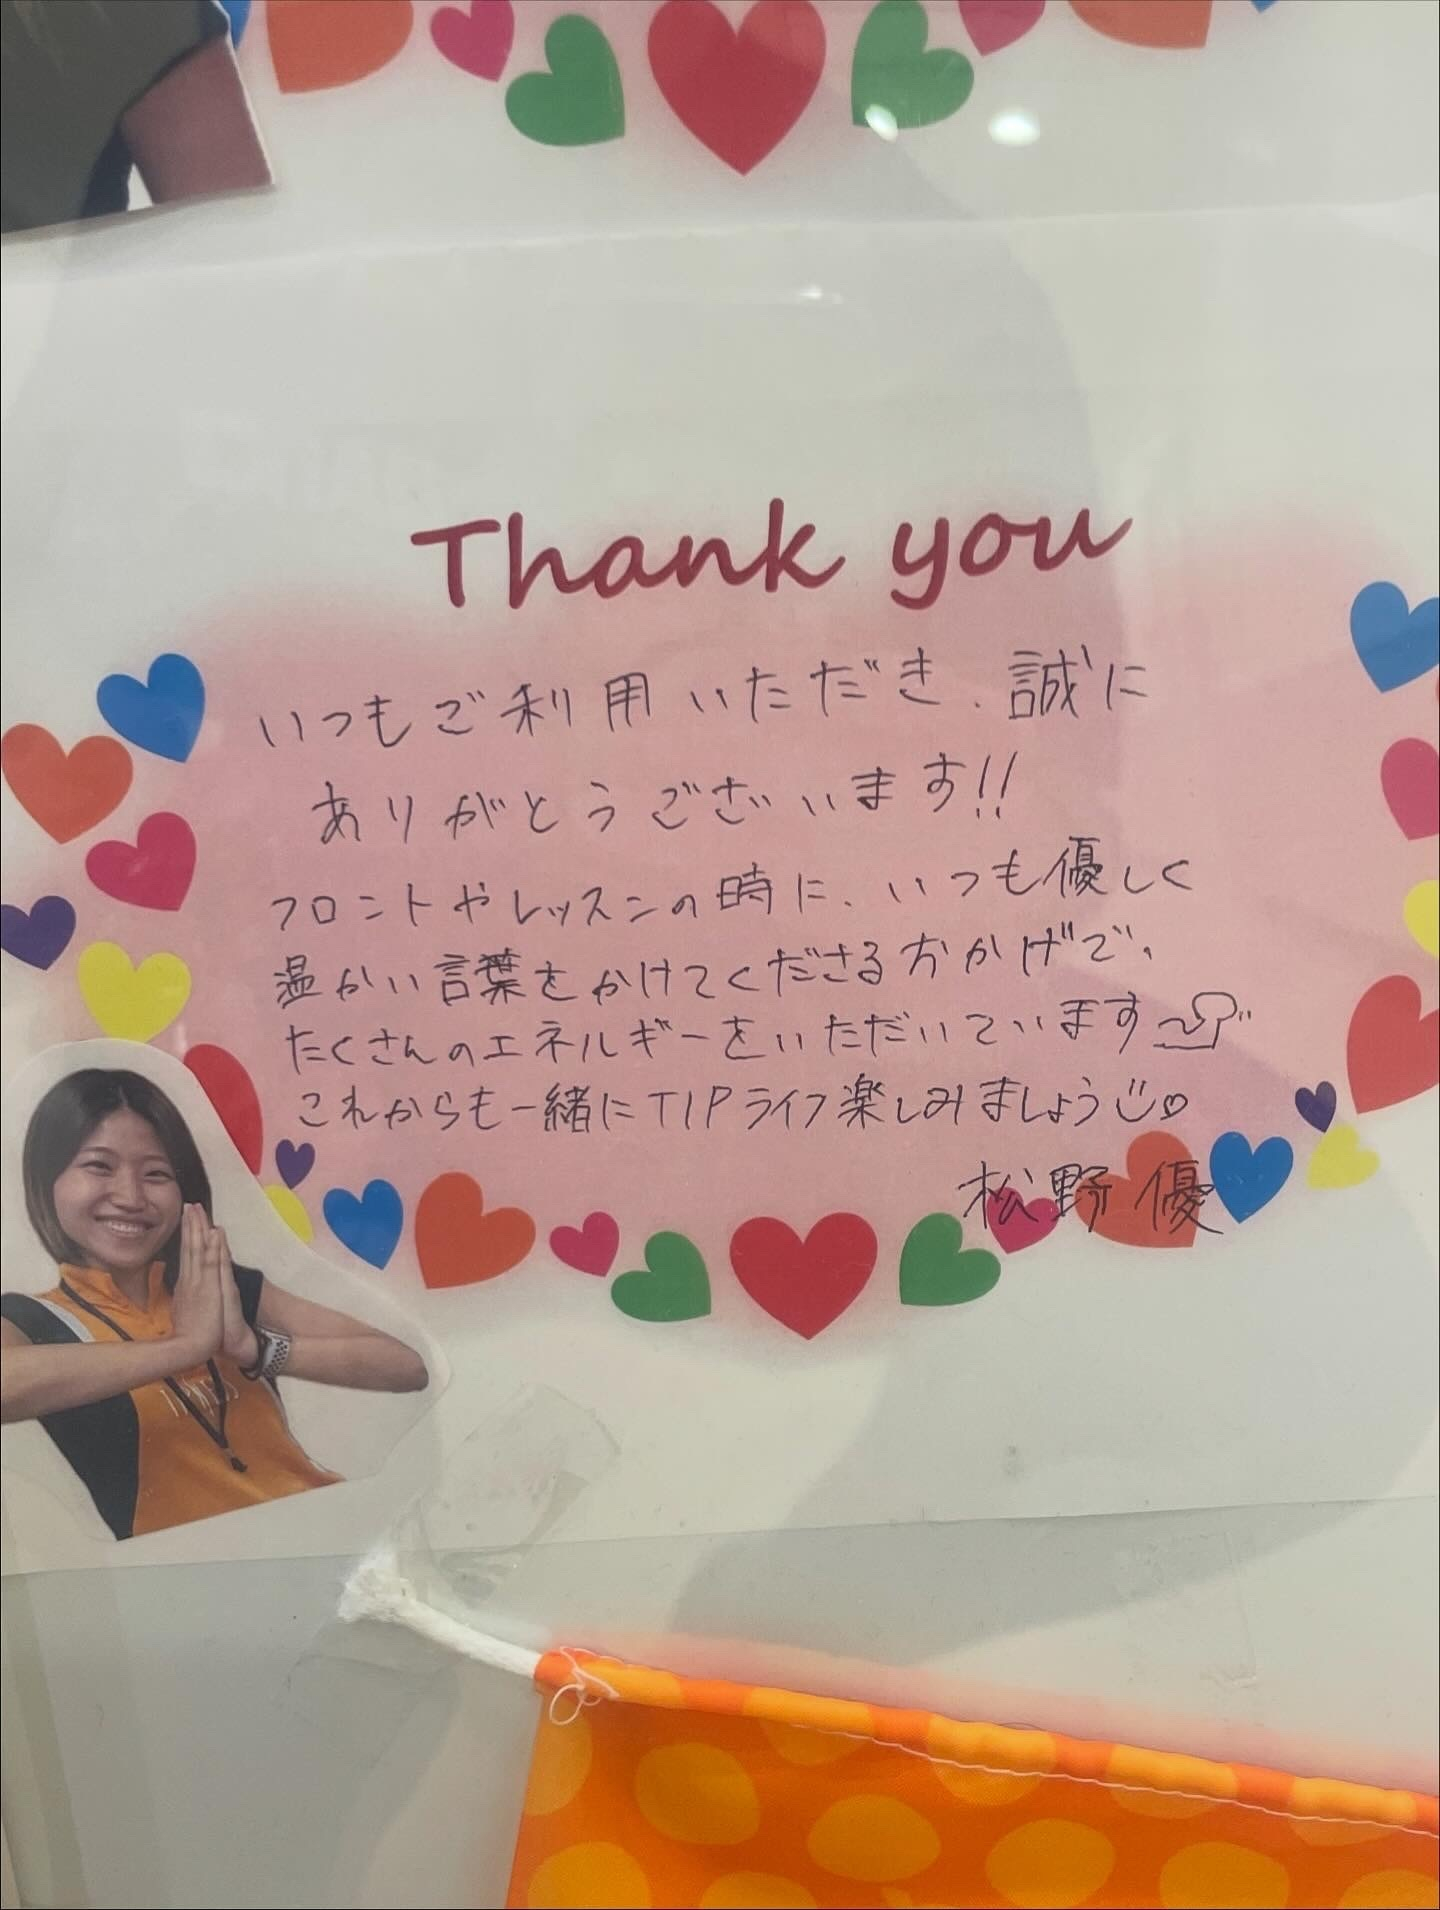 Thank you
いつもご利用いただき、誠に
ありがとうございます!!
フロントやレッスンの時に、いつも優しく
温かい言葉をかけてくださるおかげで、
たくさんのエネルギーをいただいています
これからも一緒にTIPライフ楽しみましょう
松野 優